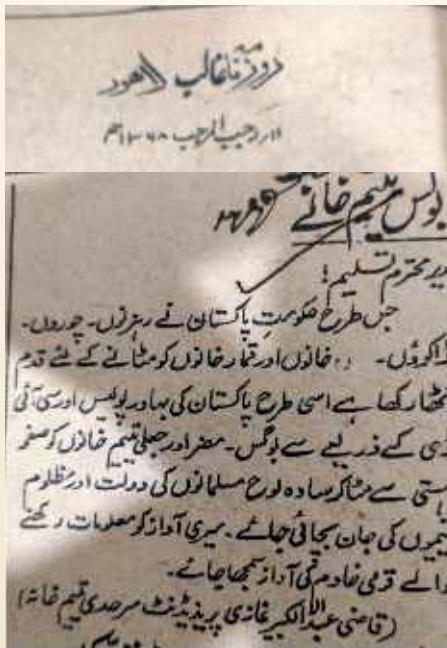 روزنامہ غالب لاہور
۱۱ر رجب المرجب ۱۳۶۸ھ
یتیم خانے
محترم تسلیم!
جس طرح حکومت پاکستان نے رہزنوں۔ چوروں۔
خانوں اور قمار خانوں کو مٹانے کے لئے قدم
رکھا ہے اسی طرح پاکستان کی بہادر پولیس اور سی آئی
ڈی کے ذریعے سے بوگس۔ مضر اور جعلی یتیم خانوں کو صفحہ
ہستی سے مٹا کر سادہ لوح مسلمانوں کی دولت اور مظلوم
یتیموں کی جان بچائی جائے۔ میری آواز کو معلومات رکھنے
والے قومی خادم کی آواز سمجھا جائے۔
(قاضی عبدالکبیر غازی پریذیڈنٹ سرحدی یتیم خانہ)